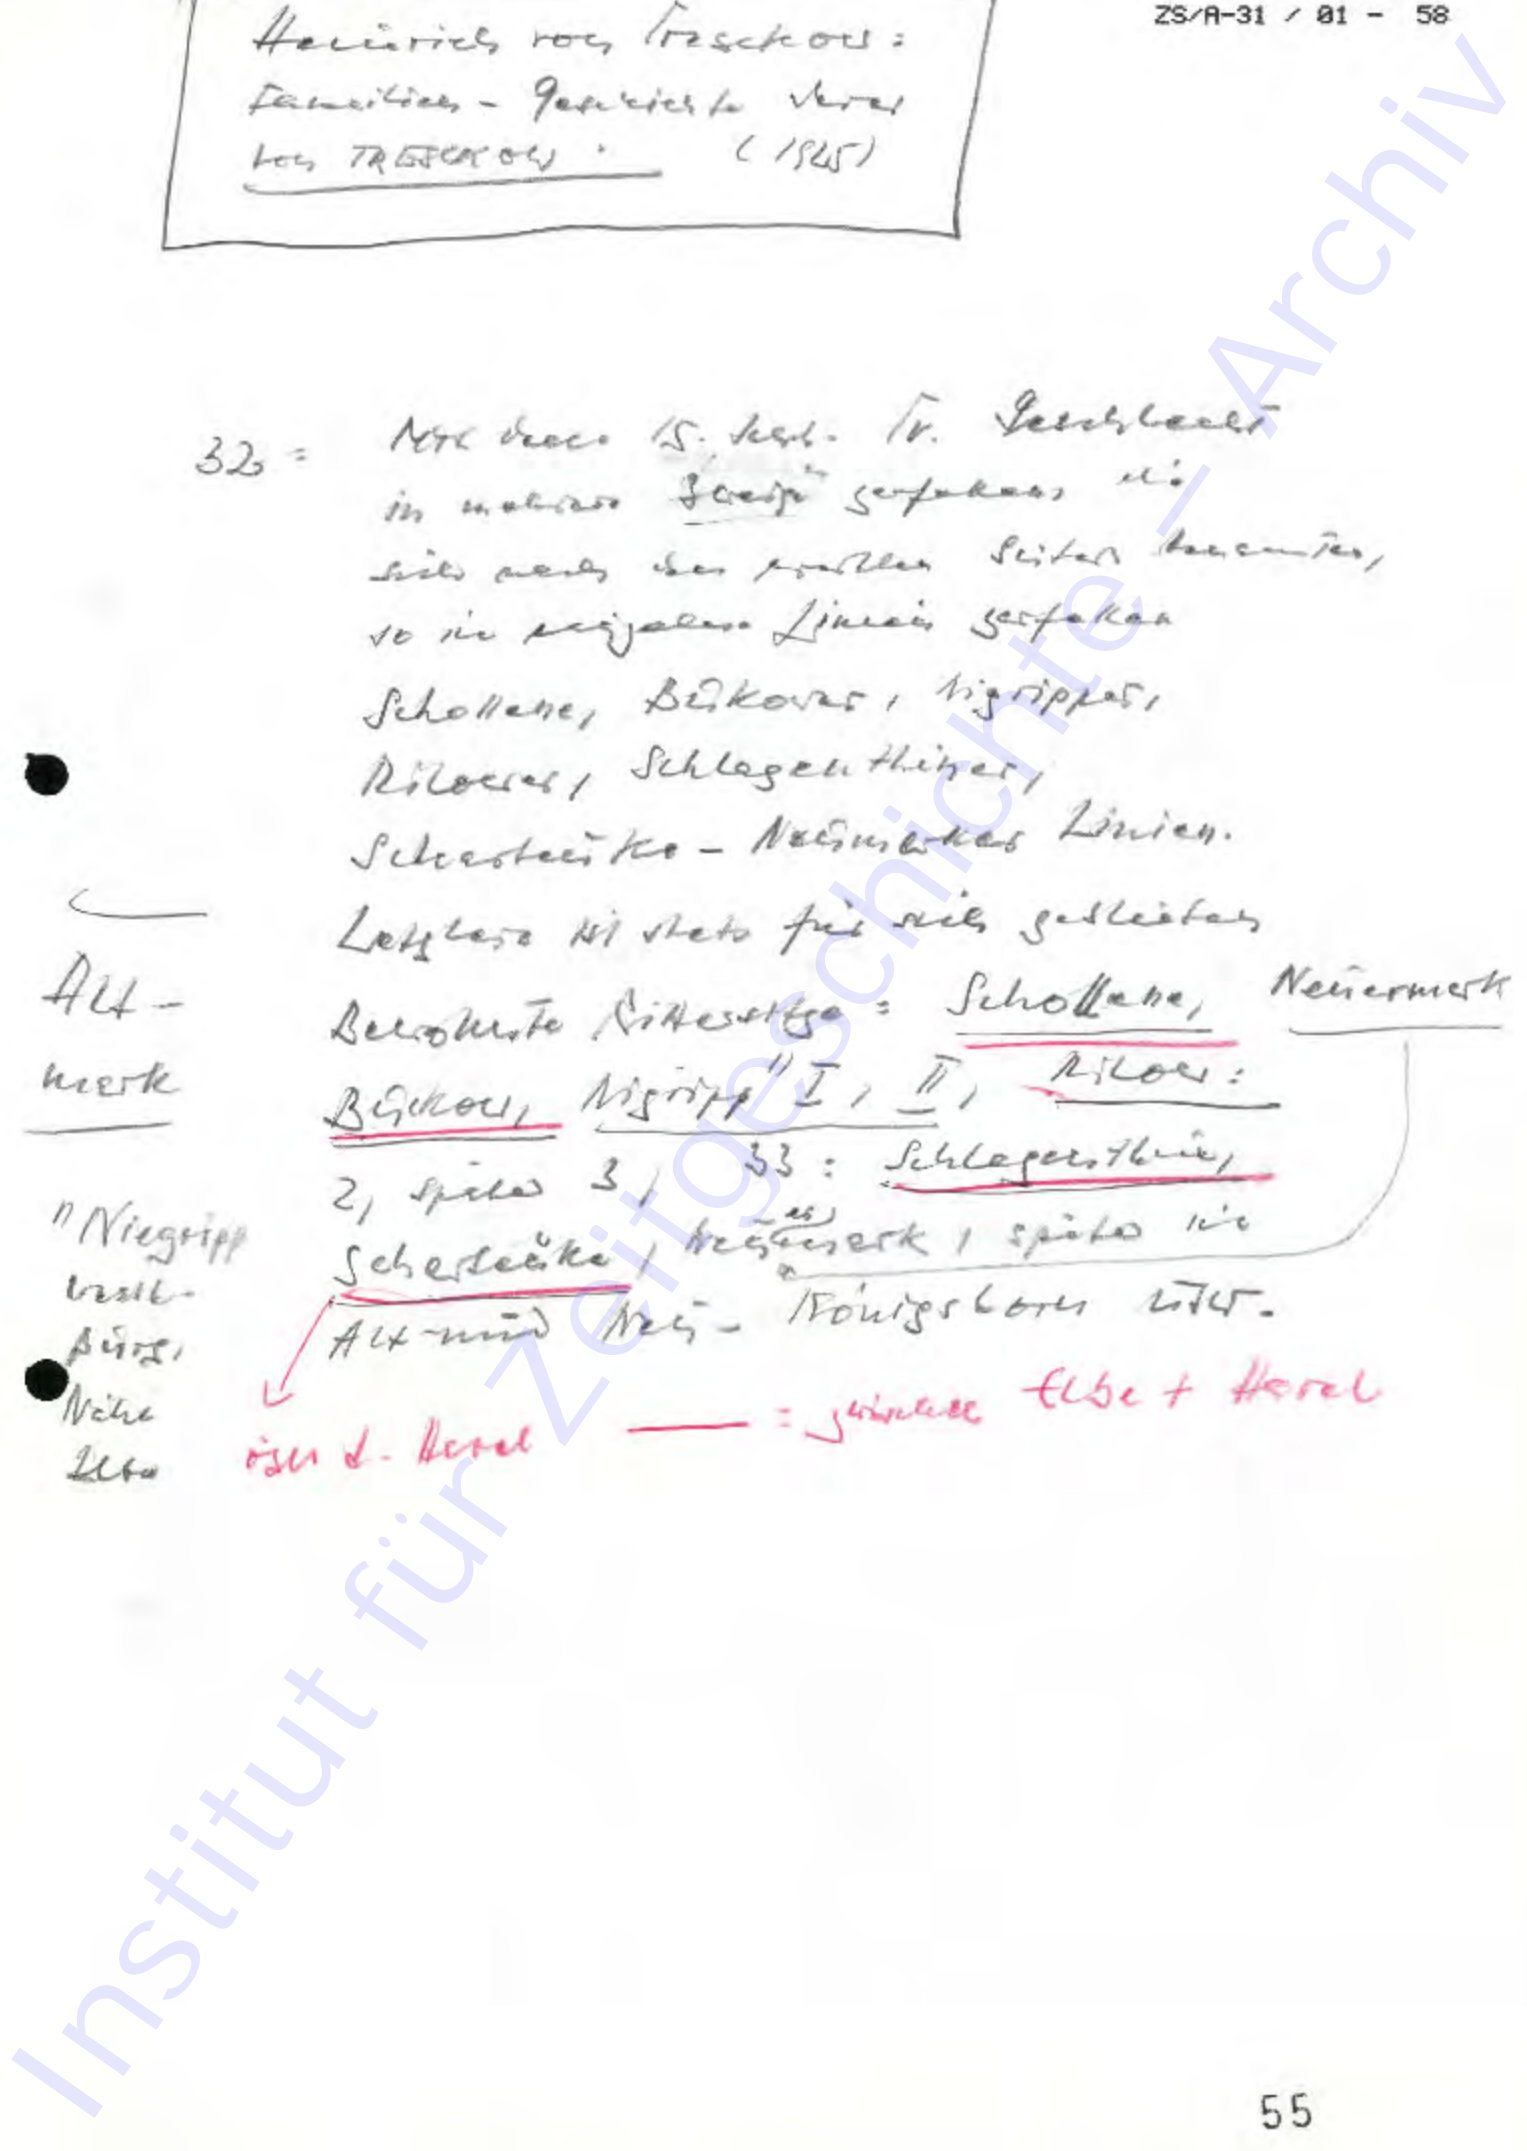 ZS/A-31 / 01 - 58
Heinrich von Treschow:
Familien-Geschichte derer
von TRESCKOW. (1925)
32: Mit dem 15. Jahrh. Tr. Geschlecht
in mehrere Zweige zerfallen die
sich nach den Sitzen benannten,
so in Linien zerfallen
Schollene, Bükower, Nigripper,
Milower, Schlagenthiner,
Schartauke - Neumärker Linien.
Letztere ist stets für sich geblieben
Bewohnte Rittersitze: Schollene, Neuermark
Bückow, Nigripp 1) I, II, Milow:
2, später 3, 33: Schlagenthin,
Schartauke, Neuermark, später in
Alt- und Neu-Königsborn usw.
Alt-
mark
1) Niegripp
Burg,
Nähe
Elbe
d. Havel
= zwischen Elbe + Havel
Institut für Zeitgeschichte - Archiv
55